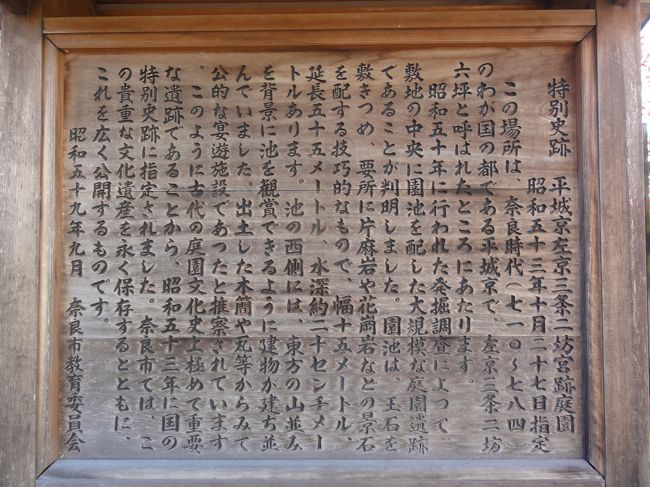 特別史跡 平城京左京三条二坊宮跡庭園
昭和五十三年十月二十七日指定
この場所は、奈良時代(七一〇〜七八四)
のわが国の都である平城京で、左京三条二坊
六坪と呼ばれたところにあたります。
昭和五十年に行われた発掘調査によって、
敷地の中央に園池を配した大規模な庭園遺跡
であることが判明しました。園池は、玉石を
敷きつめ、要所に片麻岩や花崗岩などの景石
を配する技巧的なもので、幅十五メートル、
延長五十五メートル、水深約二十センチメー
トルあります。池の西側には、東方の山並み
を背景に池を観賞できるように建物が建ち並
んでいました。出土した木簡や瓦等からみて
公的な宴遊施設であったと推察されています
。このように古代の庭園文化史上極めて重要
な遺跡であることから、昭和五十三年に国の
特別史跡に指定されました。奈良市では、こ
の貴重な文化遺産を永く保存するとともに、
これを広く公開するものです。
昭和五十九年九月 奈良市教育委員会